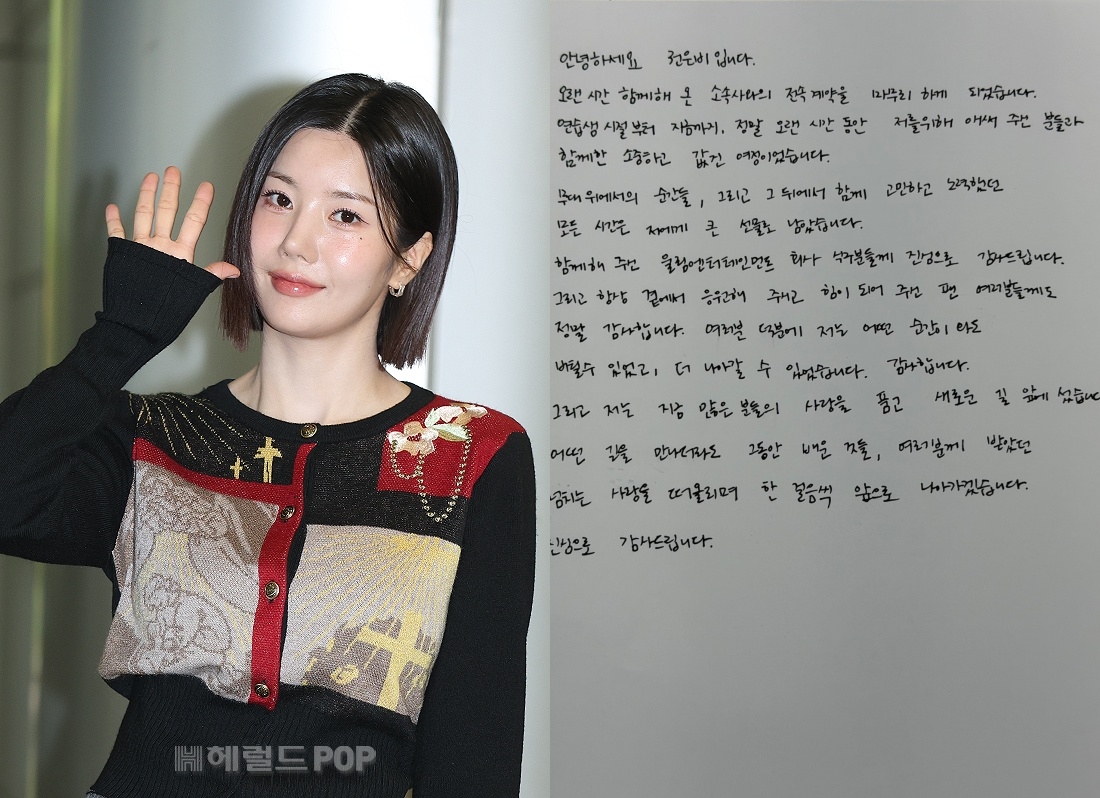 안녕하세요 권은비입니다.
오랜 시간 함께해 온 소속사와의 전속계약을 마무리 하게 되었습니다.
연습생 시절부터 지금까지, 정말 오랜 시간 동안 저를위해 애써 주신 분들과
함께한 소중하고 값진 여정이었습니다.
무대 위에서의 순간들, 그리고 그 뒤에서 함께 고민하고 노력했던
모든 시간은 저에게 큰 선물로 남았습니다.
함께해 주신 울림엔터테인먼트 회사 식구분들께 진심으로 감사드립니다.
그리고 항상 곁에서 응원해 주시고 힘이 되어 주신 팬 여러분들께도
정말 감사합니다. 여러분 덕분에 저는 어떤 순간이 와도
버틸수 있었고, 더 나아갈 수 있었습니다. 감사합니다.
그리고 저는 지금 많은 분들의 사랑을 품고 새로운 길 앞에 섰습니
어떤 길을 만나더라도 그동안 배운 것들, 여러분께 받았던
넘치는 사랑을 떠올리며 한 걸음씩 앞으로 나아가겠습니다.
진심으로 감사드립니다.
헤럴드POP